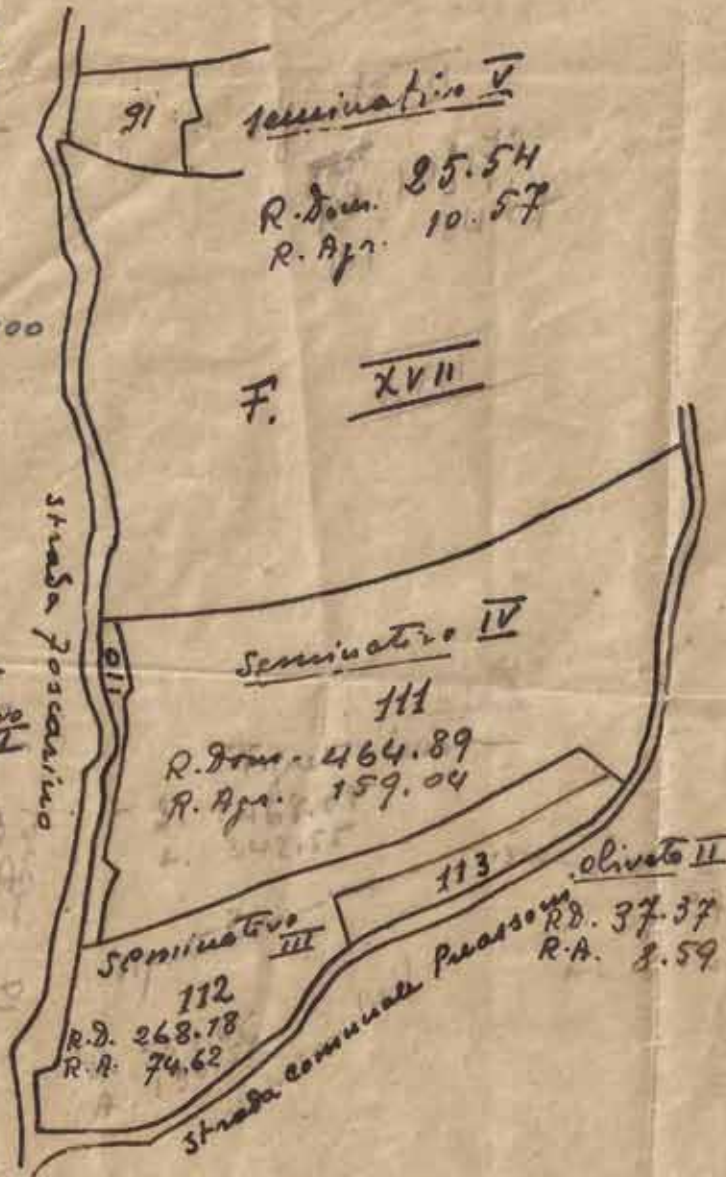 91
seminativo V
R. Dom. 25.54
R. Agr. 10.57
00
F. XVII
strada Foscarino
110
Seminativo IV
111
R. Dom. 464.89
R. Agr. 159.04
113
olivato II
R.D. 37.37
R.A. 8.59
seminativo III
112
R.D. 268.18
R.A. 74.62
strada comunale